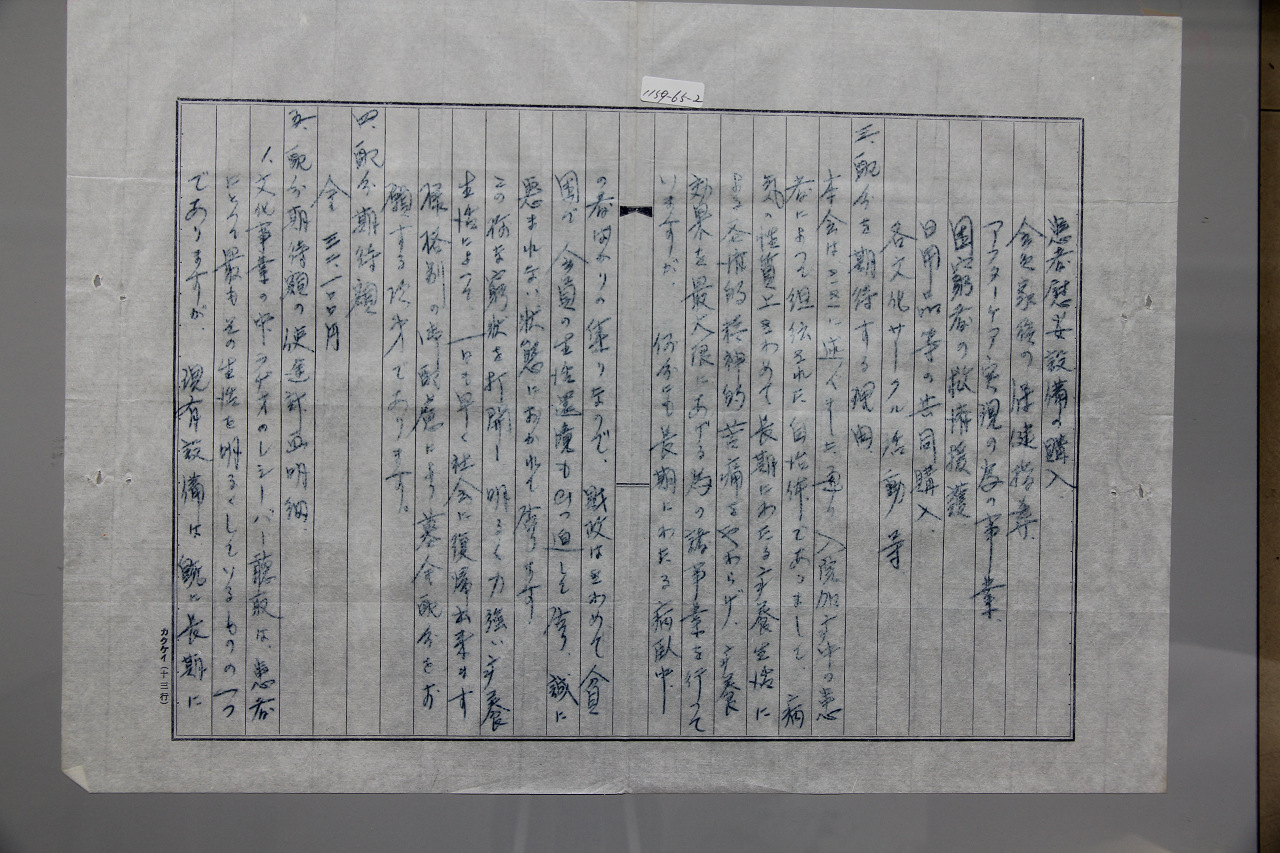 1159-65-2
患者慰安設備の購入
会員家族の保健指導
アフターケア実現の為の事業
困窮者の救済援護
日用品等の共同購入
各文化サークル活動等
三、配分を期待する理由
本会はこゝに述べました通り入院加療中の患
者によつて組伝された自治体でありまして、病
気の性質上きわめて長期にわたる療養生活に
よる全体的精神的苦痛をやわらげ、療養
効果を最大限にあげる為の諸事業を行つて
いますが、何分にも長期にわたる病臥中
の者ばかりの集りなので、財政はきわめて貧
困で会員の生活環境もひつ迫して居り、誠に
恵まれない状態におかれて居ります
この様な窮状を打開し明るく力強い療養
生活によつて一日も早く社会に復帰出来ます
様格別の御配慮により募金配分をお
願する次第であります。
四、配分期待額
金
五、配分期待額の使途計画明細
1、文化事業の中ラヂオのレシーバー聴取は、患者
にとつて最もその生活を明るくしているものの一つ
でありますが、現有設備は既に長期に
カクケイ(十三行)